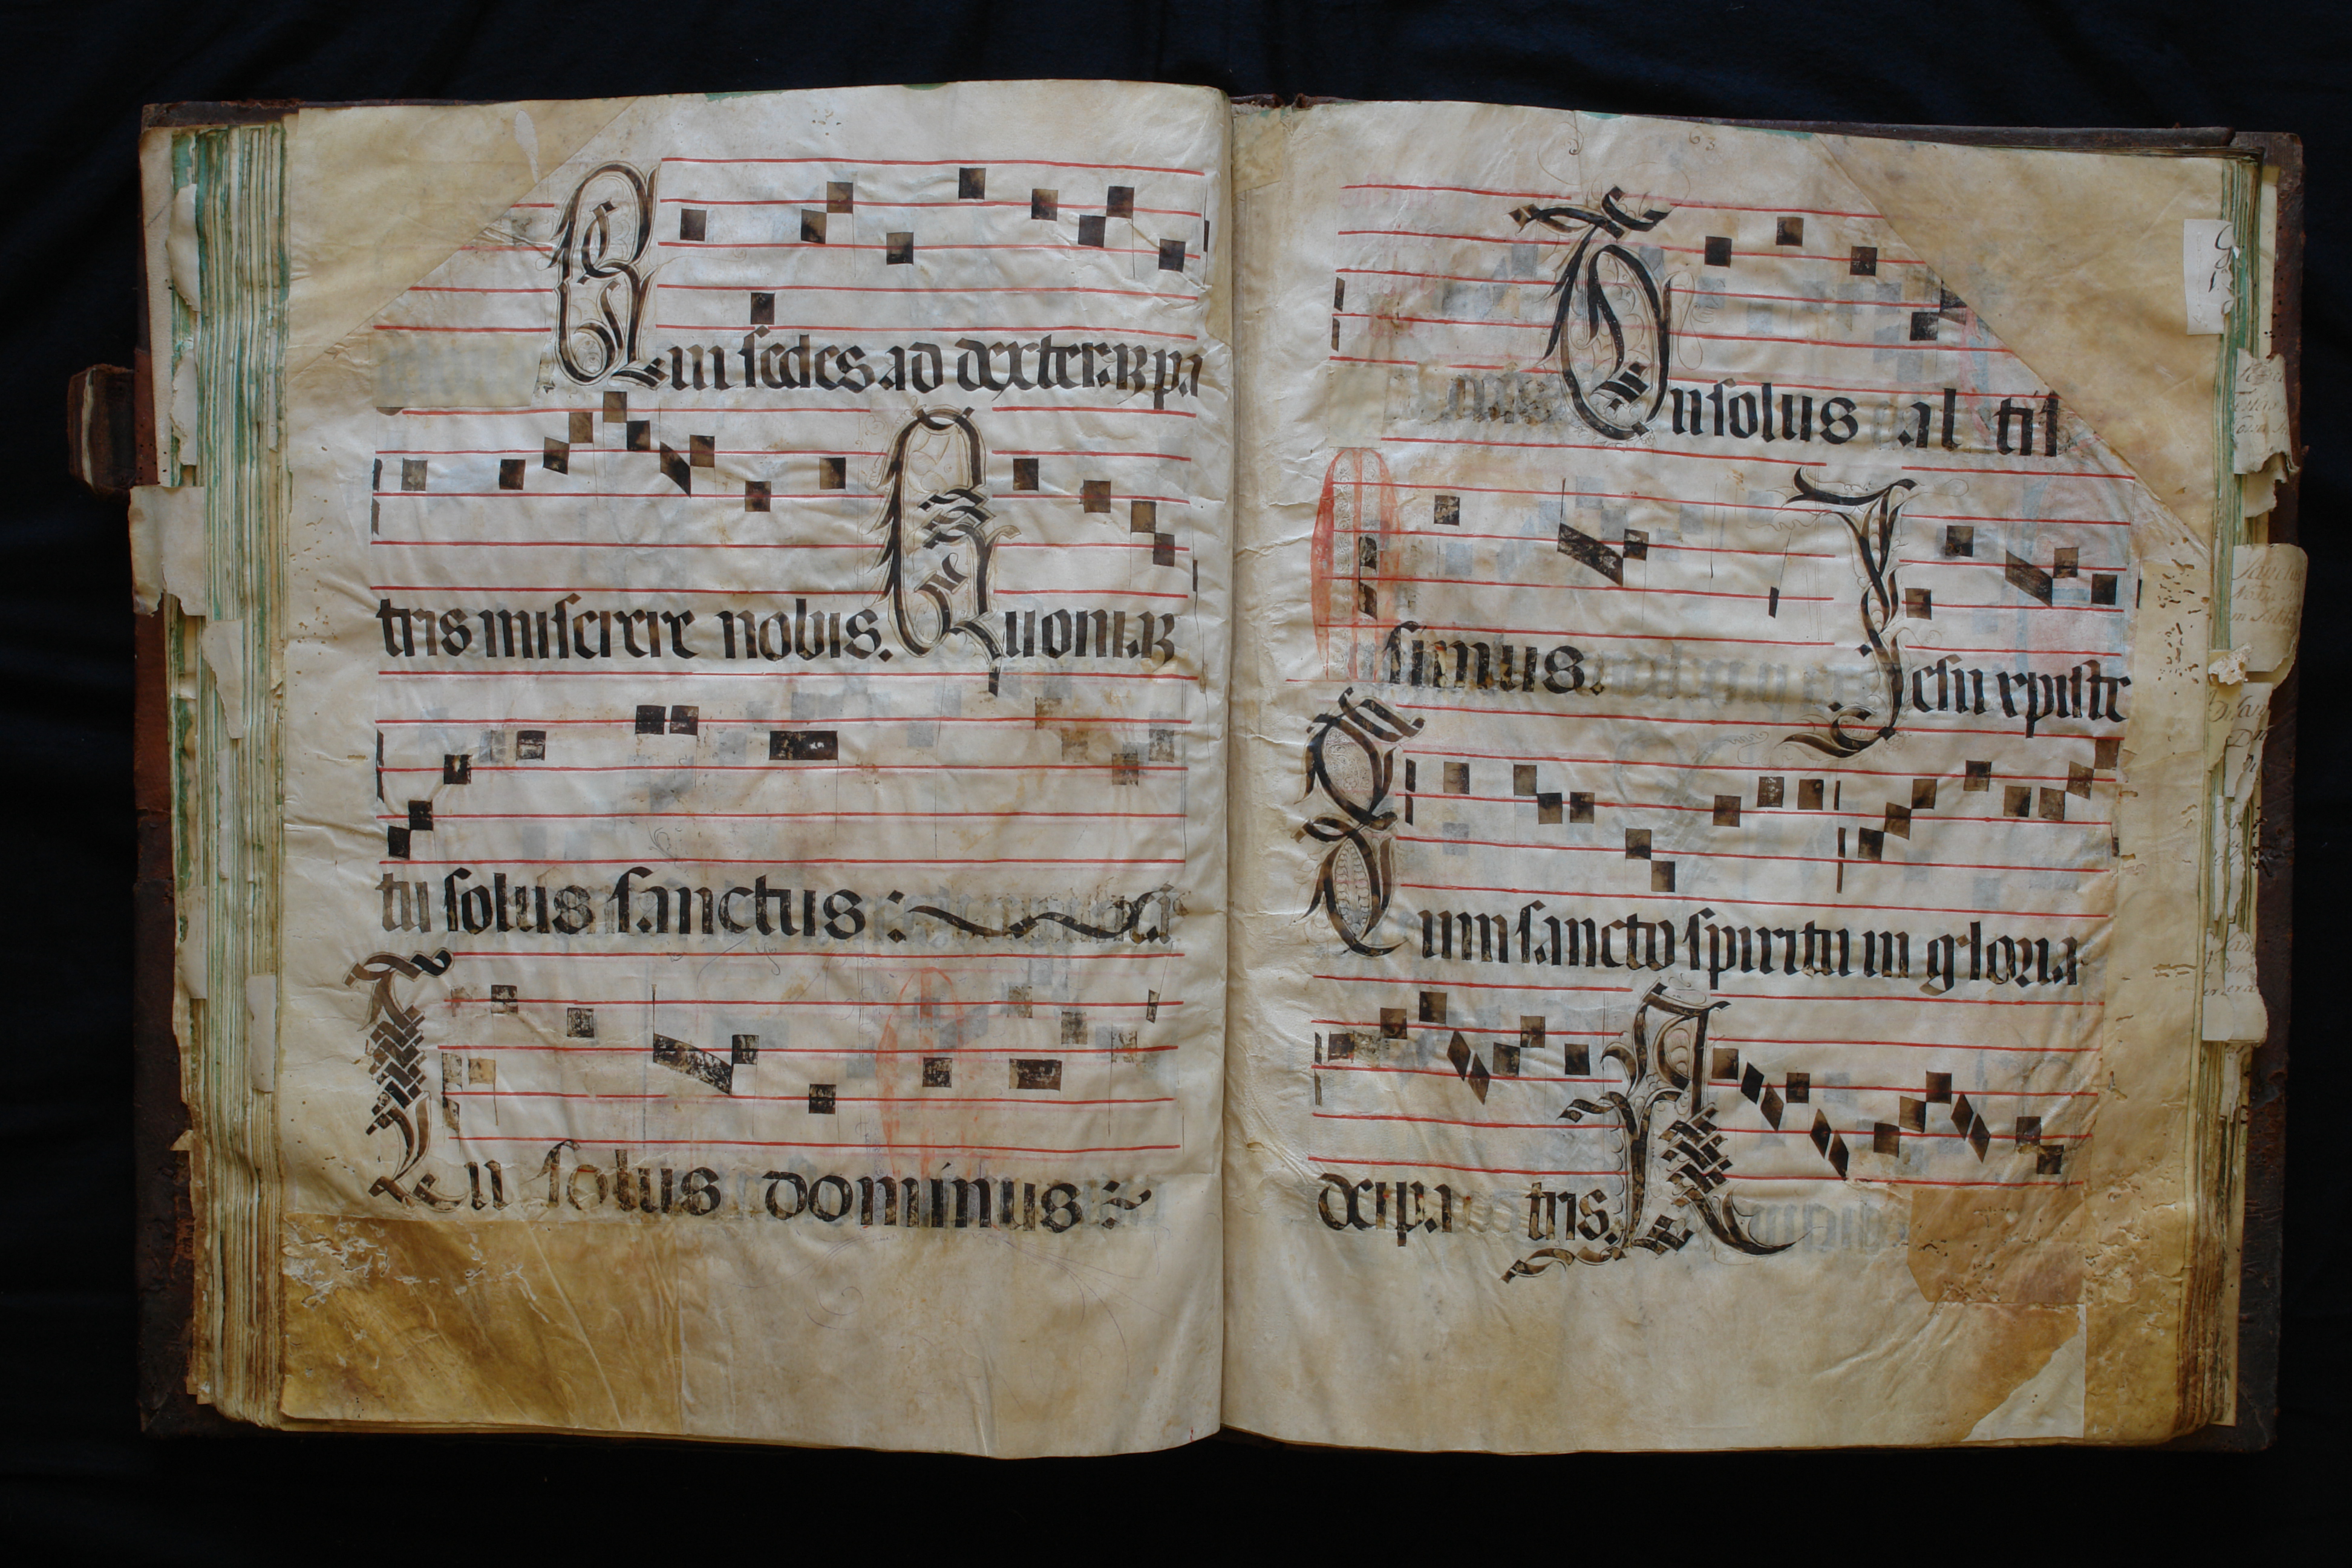 Qui sedes ad dexteraꝝ pa
tris miserere nobis. Quoniaꝝ
tu solus sanctus :
Tu solus dominus :~
63
Tu solus al tis
simus. Jesu xpiste
Cum sancto spiritu in gloria
dei pa tris. A